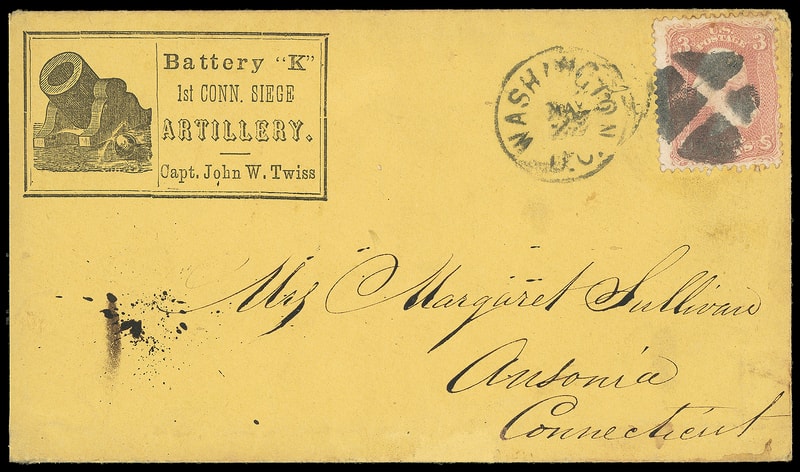 Battery "K"
1st CONN. SIEGE
ARTILLERY.
Capt. John W. Twiss
WASHINGTON
D.C.
U.S.
POSTAGE
3 3
Mrs Margaret Sullivan
Ansonia
Connecticut